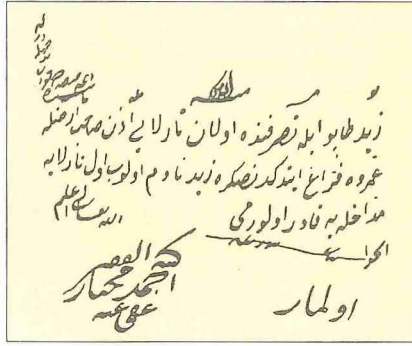 زيد طاپو ايله تصرفنده اولان تارلايى اذن صاحب ارضله
عمروه فراغ ايتدكدنصكره زيد نادم اولوب اول تارلايه
مداخله يه قادر اولورمى
الله تعالى اعلم
الجواب
اولماز
كتبه الفقير
احمد مختار
عفى عنه